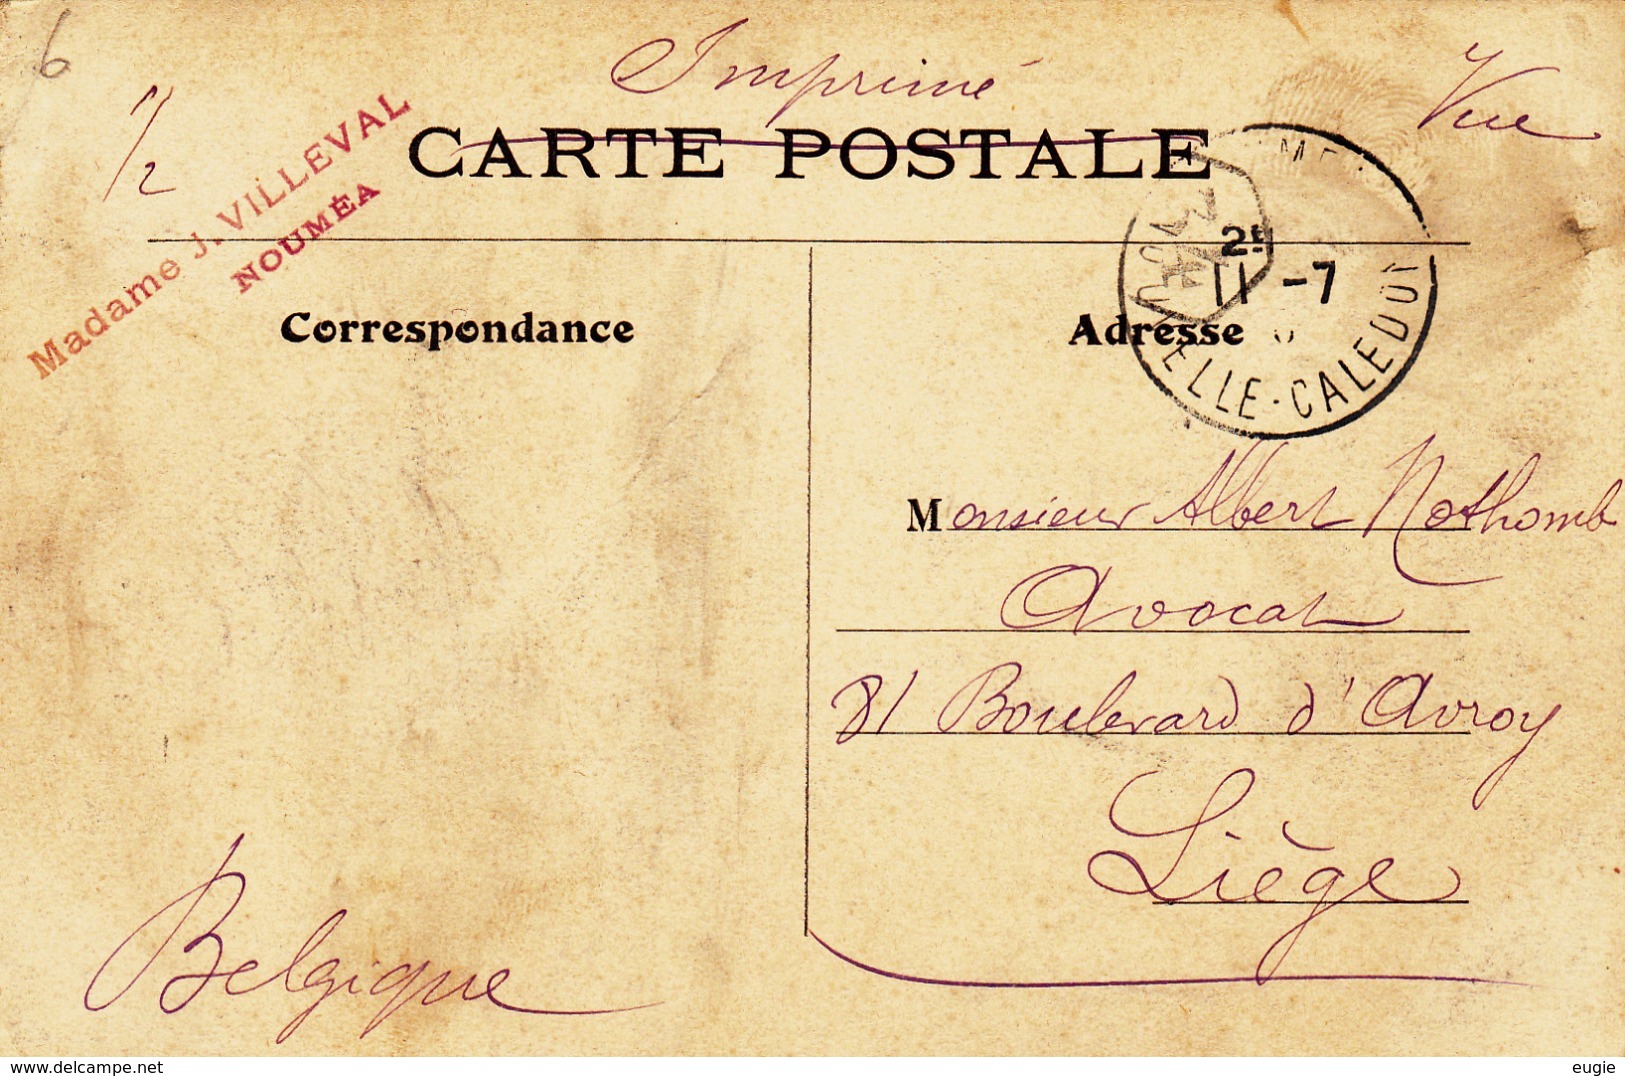 6
Imprimé
Vue
1/2
CARTE POSTALE
Madame J. VILLEVAL
NOUMÉA
2E
11 -7
ELLE-CALEDONI
Correspondance
Adresse
Monsieur Albert Nothomb
Avocat
81 Boulevard d'Avroy
Liège
Belgique
www.delcampe.net
eugie